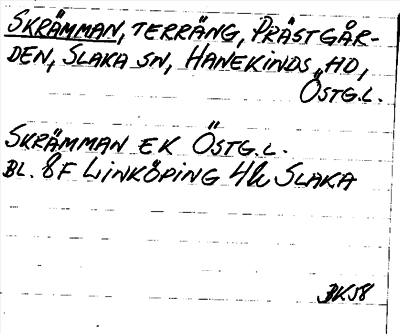 SKRÄMMAN, TERRÄNG, PRÄSTGÅR-
DEN, SLAKA SN, HANEKINDS HD,
ÖSTG.L.
SKRÄMMAN EK ÖSTG.L.
BL. 8F LINKÖPING 4h SLAKA
BK58